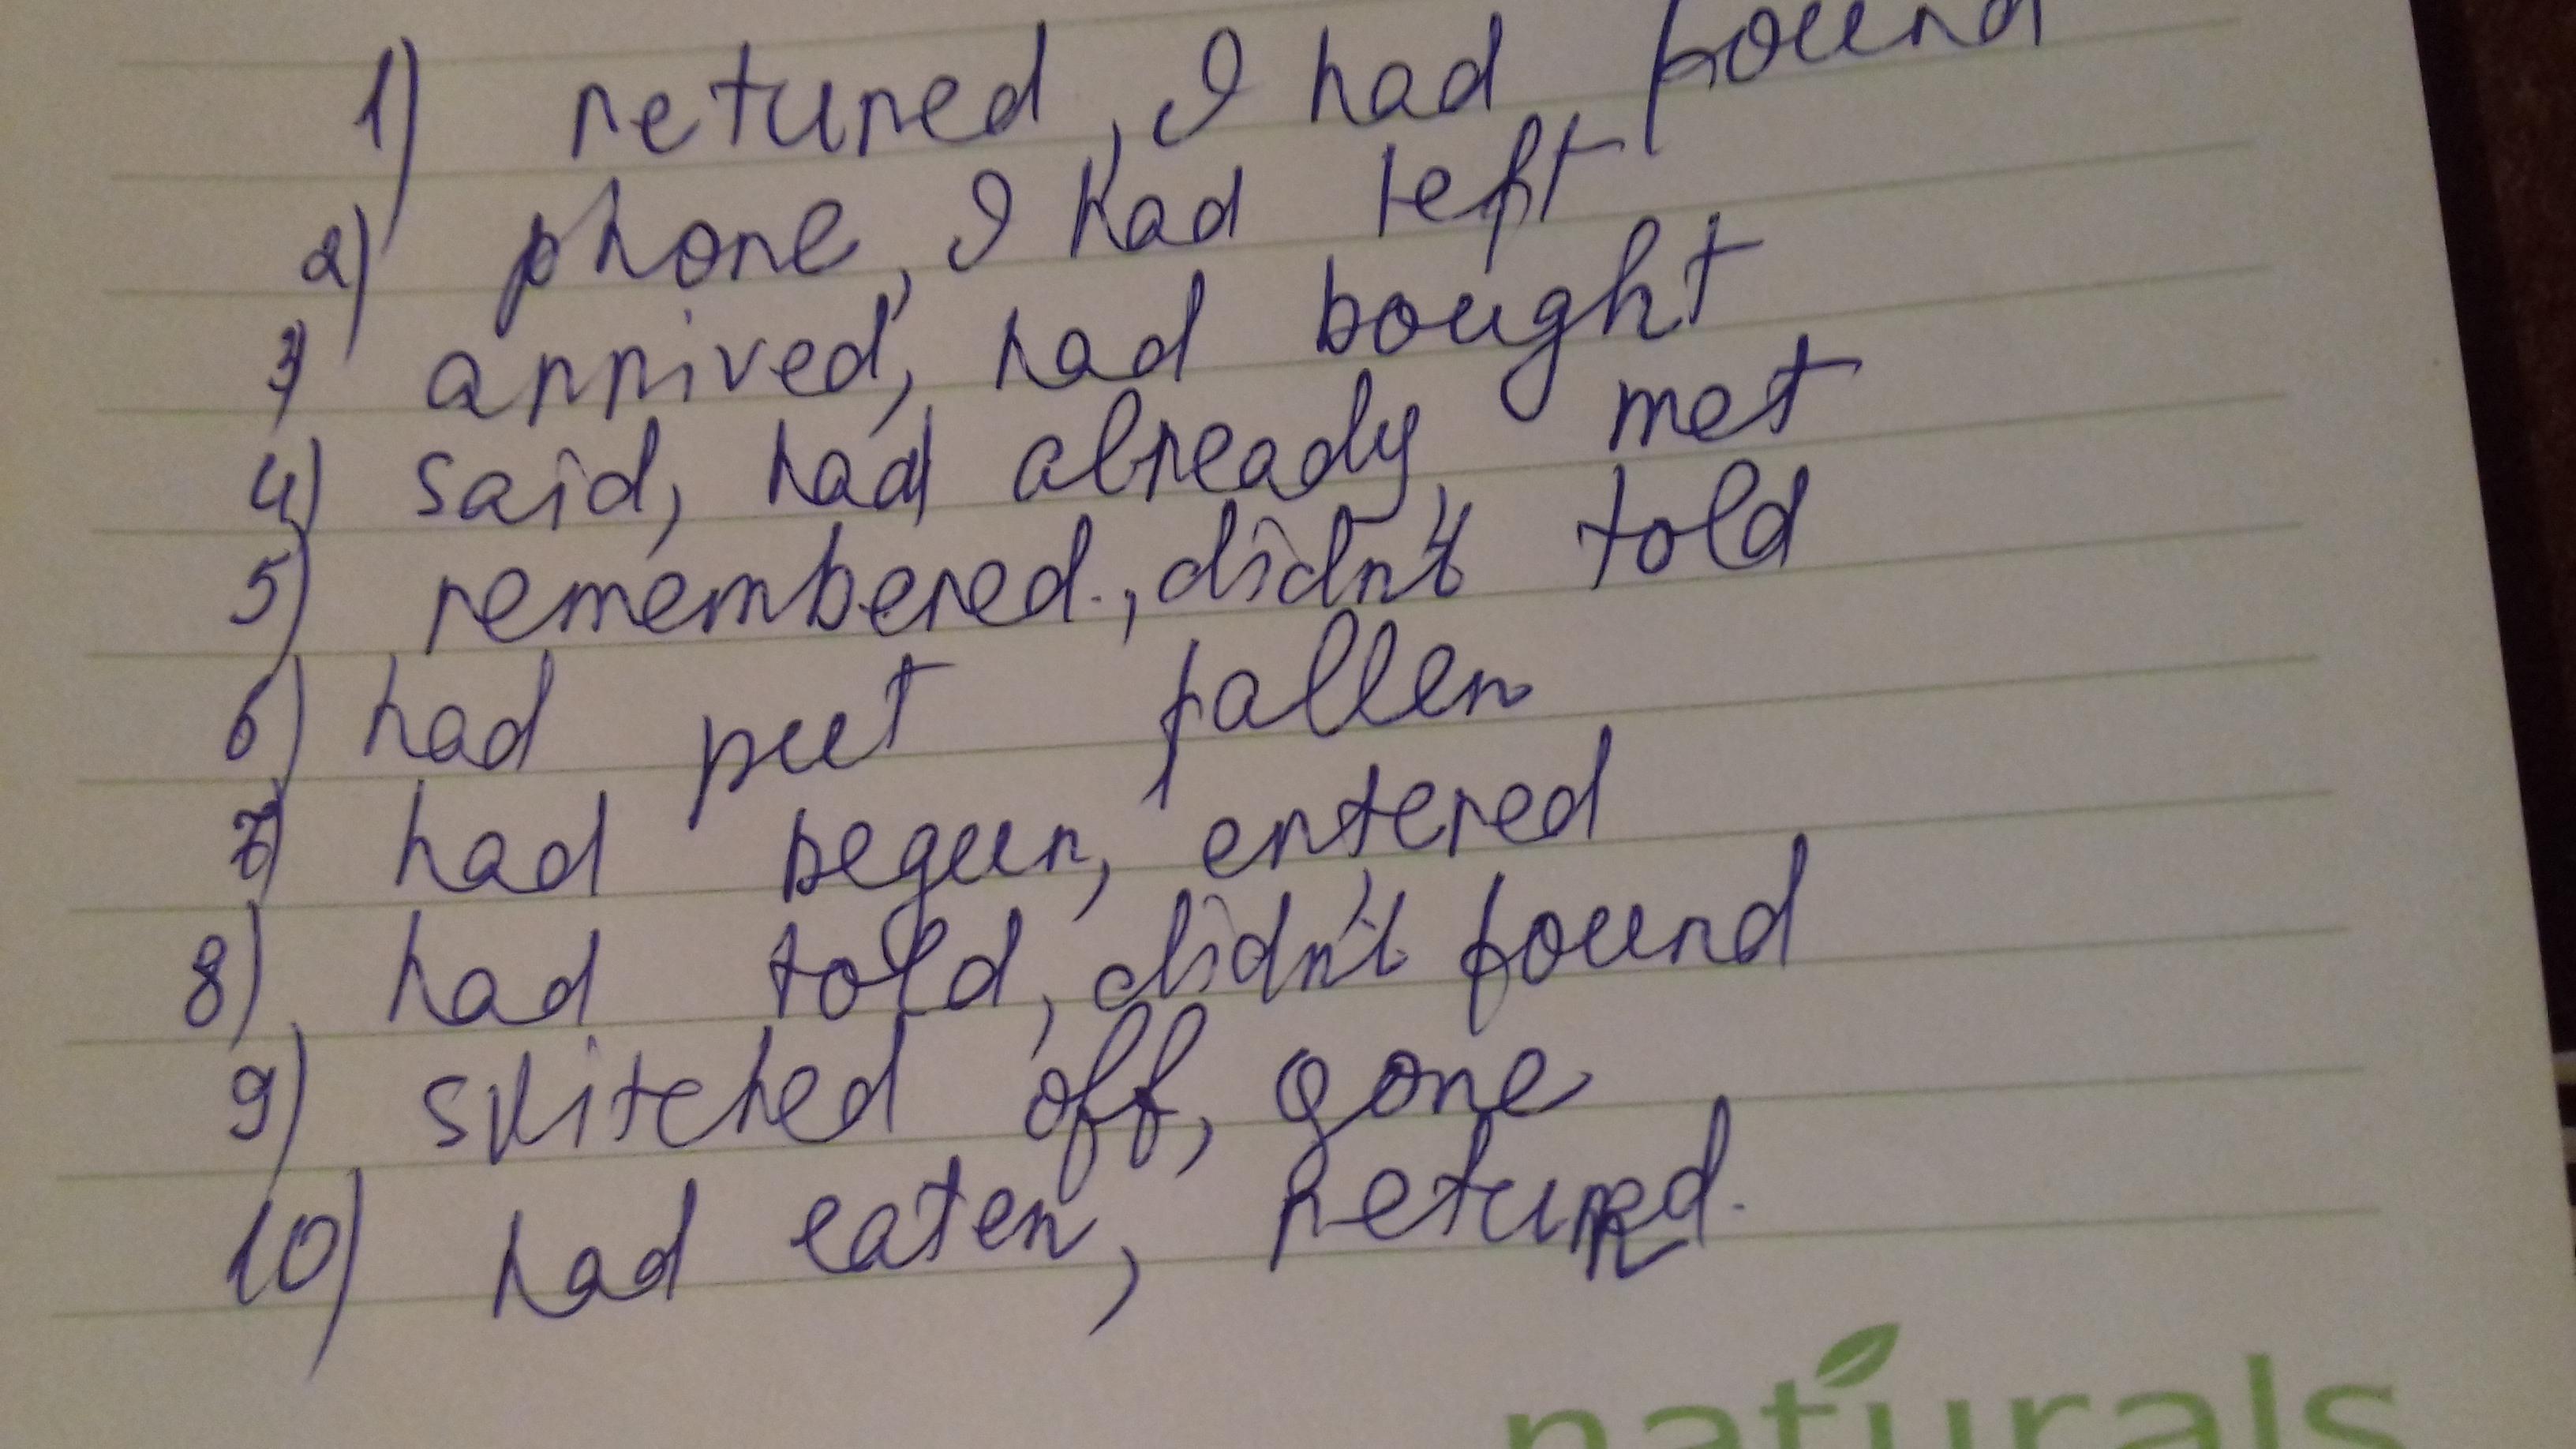 1) retured, I had found
2) phone, I had left
3) arrived, had bought
4) said, had already met
5) remembered., didn't told
6) had put fallen
7) had begun, entered
8) had told, didn't found
9) switched off, gone
10) had eaten, retured.
naturals